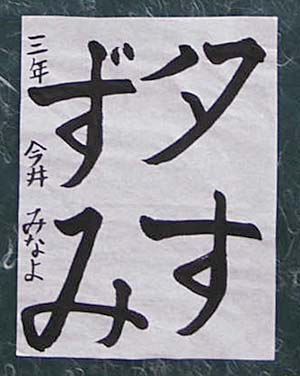 夕す
ずみ
三年 今井 みなよ